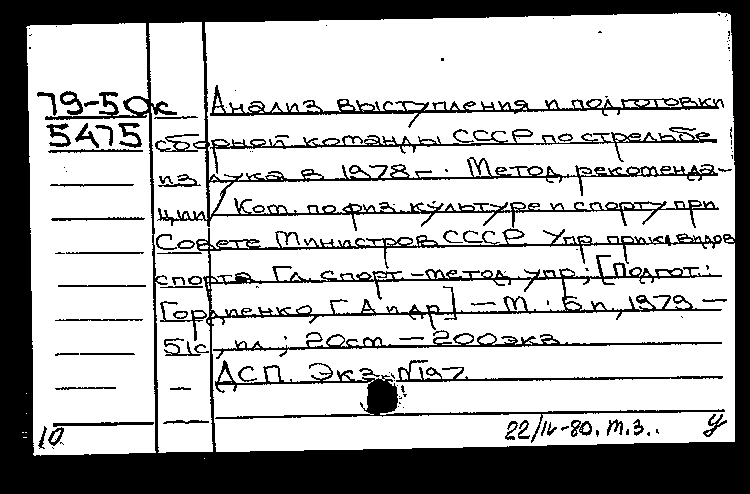 79-50к Анализ выступления и подготовки
5475 сборной команды СССР по стрельбе
из лука в 1978 г. Метод. рекоменда-
ции / Ком. по физ. культуре и спорту при
Совете Министров СССР Упр. прикл. видов
спорта Гл. спорт.-метод. упр.; [Подгот.:
Гордиенко, Г. А и др.] – М. : Б. и., 1979 –
51с., ил.; 20см. – 200экз.
ДСП. Экз. №197.
10 22/IV-80. т.з.. У